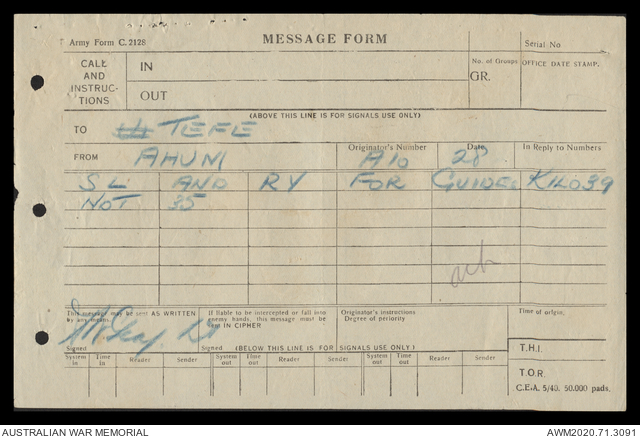 Army Form C. 2128
MESSAGE FORM
Serial No
CALL AND INSTRUCTIONS
IN
OUT
No. of Groups
GR.
OFFICE DATE STAMP.
(ABOVE THIS LINE IS FOR SIGNALS USE ONLY)
TO TEFE
FROM AHUNI
Originator's Number A10
Date 28
In Reply to Numbers
SL AND RY FOR GUIDES KILO 39
NOT 35
This message may be sent AS WRITTEN by any means.
If liable to be intercepted or fall into enemy hands, this message must be sent IN CIPHER
Originator's instructions
Degree of periority
Time of origin.
Signed
Signed
(BELOW THIS LINE IS FOR SIGNALS USE ONLY)
System in
Time in
Reader
Sender
System out
Time out
Reader
Sender
System out
Time out
Reader
Sender
T.H.I.
T.O.R.
C.E.A. 5/40. 50.000 pads.
AUSTRALIAN WAR MEMORIAL
AWM2020.71.3091